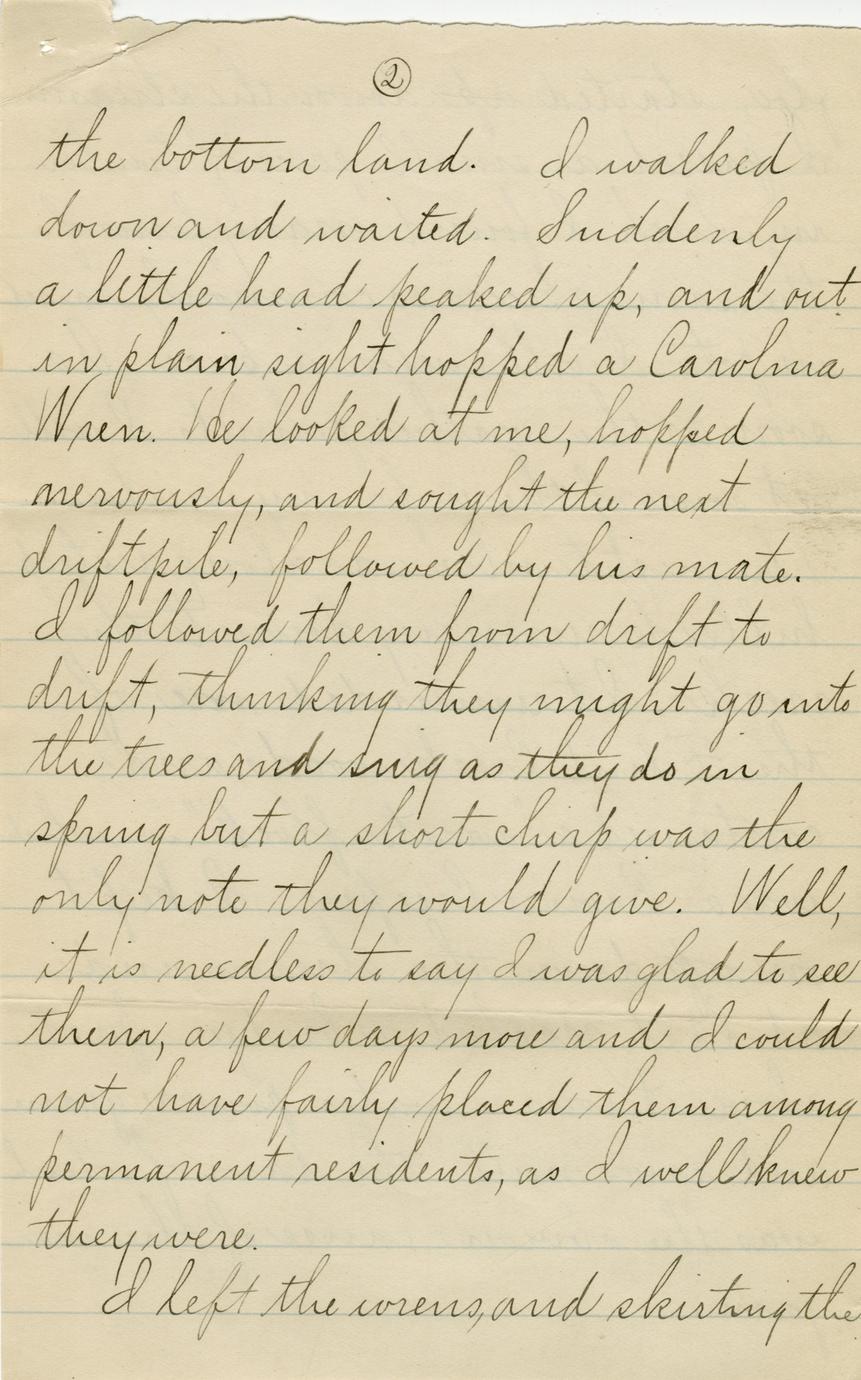 2
the bottom land. I walked
down and waited. Suddenly
a little head peaked up, and out
in plain sight hopped a Carolina
Wren. He looked at me, hopped
nervously, and sought the next
driftpile, followed by his mate.
I followed them from drift to
drift, thinking they might go into
the trees and sing as they do in
spring but a short chirp was the
only note they would give. Well,
it is needless to say I was glad to see
them, a few days more and I could
not have fairly placed them among
permanent residents, as I well knew
they were.
I left the wrens, and skirting the